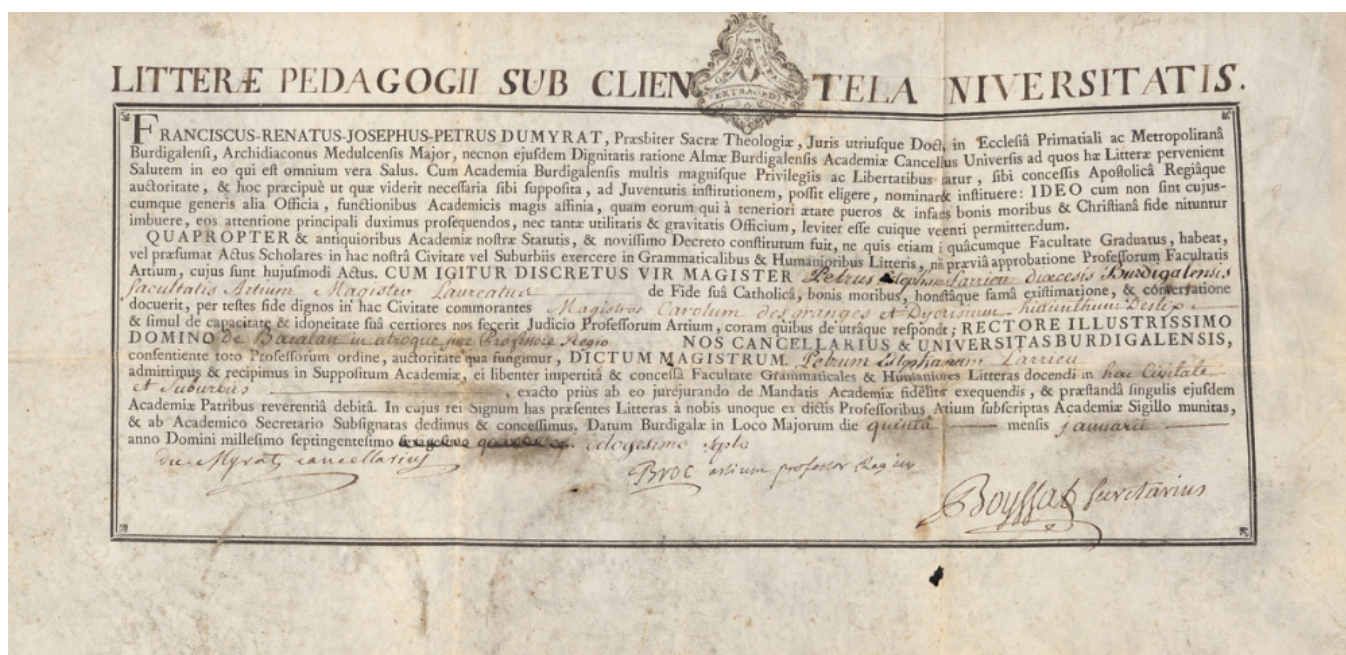 LITTERÆ PEDAGOGII SUB CLIEN TELA NIVERSITATIS.
EXTRAORD
FRANCISCUS-RENATUS-JOSEPHUS-PETRUS DUMYRAT, Præsbiter Sacræ Theologiæ, Juris utriusque Doct, in Ecclesiâ Primatiali ac Metropolitanâ
Burdigalensi, Archidiaconus Medulcensis Major, necnon ejusdem Dignitatis ratione Almæ Burdigalensis Academiæ Cancellus Universis ad quos hæ Litteræ pervenient
Salutem in eo qui est omnium vera Salus. Cum Academia Burdigalensis multis magnisque Privilegiis ac Libertatibus atur, sibi concessis Apostolicâ Regiâque
auctoritate, & hoc præcipuè ut quæ viderit necessaria sibi supposita, ad Juventutis institutionem, possit eligere, nominare & instituere: IDEO cum non sint cujus-
cumque generis alia Officia, functionibus Academicis magis affinia, quam eorum qui à teneriori ætate pueros & infaes bonis moribus & Christianâ fide nituntur
imbuere, eos attentione principali duximus prosequendos, nec tantæ utilitatis & gravitatis Officium, leviter esse cuique venti permittendum.
QUAPROPTER & antiquioribus Academiæ nostræ Statutis, & novissimo Decreto constitutum fuit, ne quis etiam i quâcumque Facultate Graduatus, habeat,
vel præsumat Actus Scholares in hac nostrâ Civitate vel Suburbiis exercere in Grammaticalibus & Humanioribus Litteris, præviâ approbatione Professorum Facultatis
Artium, cujus sunt hujusmodi Actus. CUM IGITUR DISCRETUS VIR MAGISTER Petrus Larrieu diœcesis Burdigalensis
facultatis Artium Magister Laureatus de Fide suâ Catholicâ, bonis moribus, honstâque famâ existimatione, & conversatione
docuerit, per testes fide dignos in hac Civitate commorantes Magistros Carolum desgranges et hiacinthum
& simul de capacitate & idoneitate suâ certiores nos fecerit Judicio Professorum Artium, coram quibus de utrâque respondt; RECTORE ILLUSTRISSIMO
DOMINO de Bacalan in utroque jure Professore Regio NOS CANCELLARIUS & UNIVERSITAS BURDIGALENSIS,
consentiente toto Professorum ordine, auctoritate qua fungimur, DICTUM MAGISTRUM. Petrum Larrieu
admittimus & recipimus in Suppositum Academiæ, ei libenter impertitâ & concessâ Facultate Grammaticales & Humaniores Litteras docendi in hac Civitate
et Suburbiis, exacto prius ab eo jurejurando de Mandatis Academiæ fidelitr exequendis, & præstandâ singulis ejusdem
Academiæ Patribus reverentiâ debitâ. In cujus rei Signum has præsentes Litteras à nobis unoque ex dictis Professoribus Atium subscriptas Academiæ Sigillo munitas,
& ab Academico Secretario Subsignatas dedimus & concessimus. Datum Burdigalæ in Loco Majorum die quintâ mensis januarii
anno Domini millesimo septingentesimo octogesimo
du Myrat cancellarius
Broc artium professor Regius
Boyssat secretarius